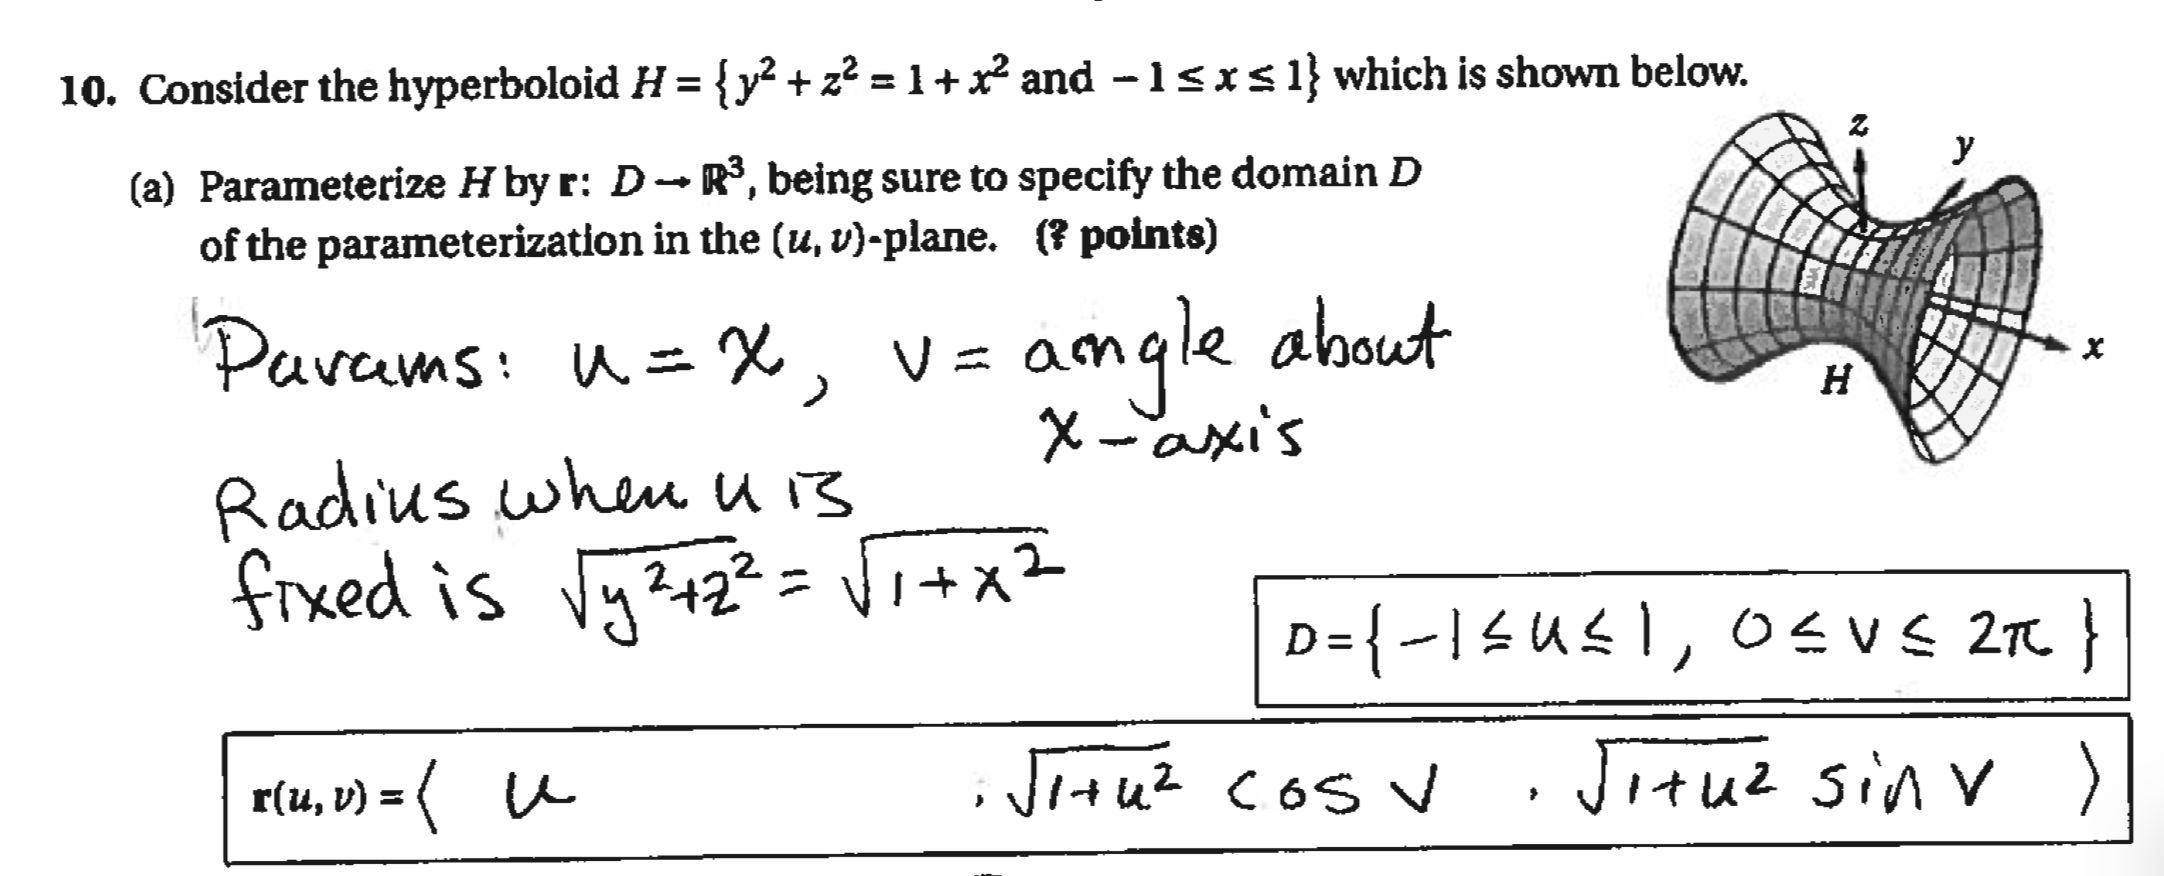 10. Consider the hyperboloid H = {y² + z² = 1 + x² and −1 ≤ x ≤ 1} which is shown below.
(a) Parameterize H by r: D → ℝ³, being sure to specify the domain D
of the parameterization in the (u, v)-plane. (? points)
z
y
x
H
Params: u = x, v = angle about
x-axis
Radius when u is
fixed is √(y²+z²) = √(1+x²)
D = { −1 ≤ u ≤ 1, 0 ≤ v ≤ 2π }
r(u, v) = ⟨ u , √(1+u²) cos v , √(1+u²) sin v ⟩